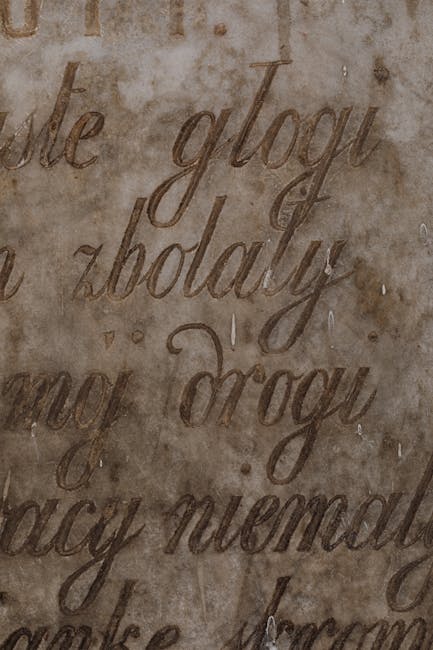 ste głogi
zbolały
mój drogi
acy niemał